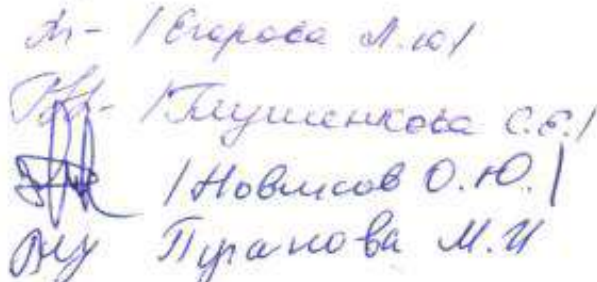 /Егорова Л.Ю/
/Глушенкова С.Е./
/Новиков О.Ю./
Пуранова М.И